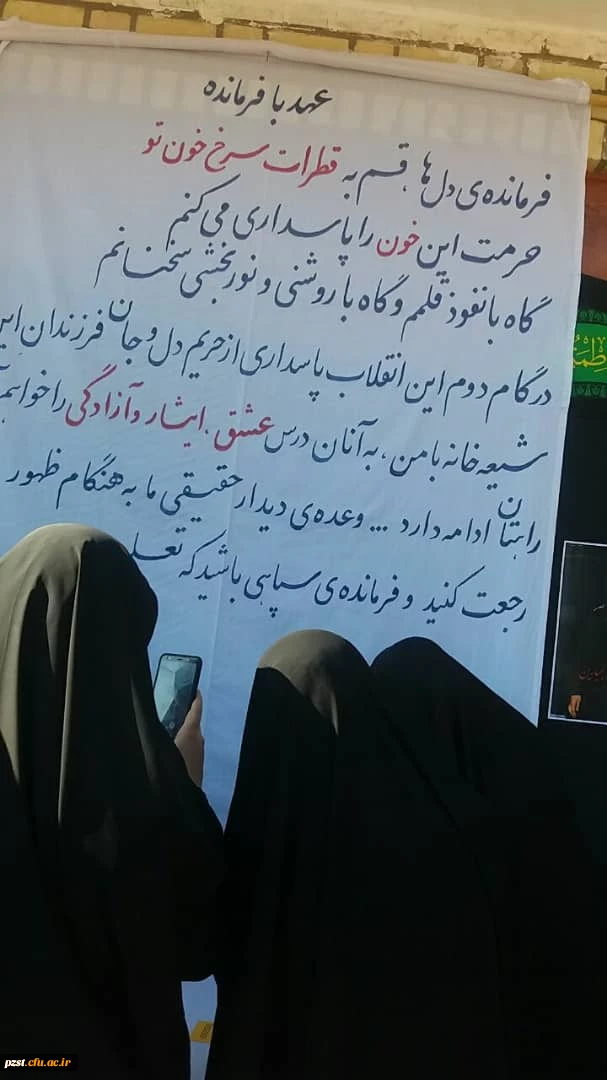 عهد با فرمانده
فرمانده‌ی دل‌ها، قسم به قطرات سرخ خون تو
حرمت این خون را پاسداری می‌کنم
گاه با نفوذ قلمم و گاه با روشنی و نوربخشی سخنانم
در گام دوم این انقلاب پاسداری از حریم دل و جان فرزندان این
شیعه خانه با من، به آنان درس عشق، ایثار و آزادگی را
راهتان ادامه دارد ... وعده‌ی دیدار حقیقی ما به هنگام ظهور
رجعت کنید و فرمانده‌ی سپاهی باشید که
pzst.cfu.ac.ir